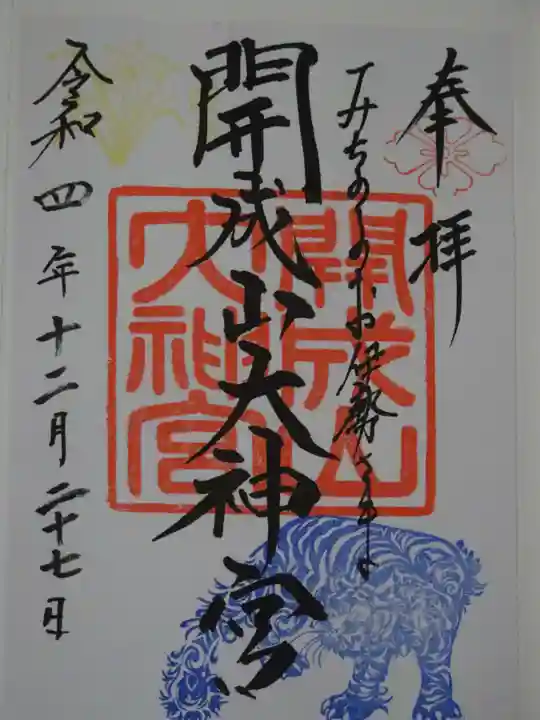 奉拝
みちのくのお伊勢さま
開成山大神宮
開成山
大神宮
令和四年十二月二十七日